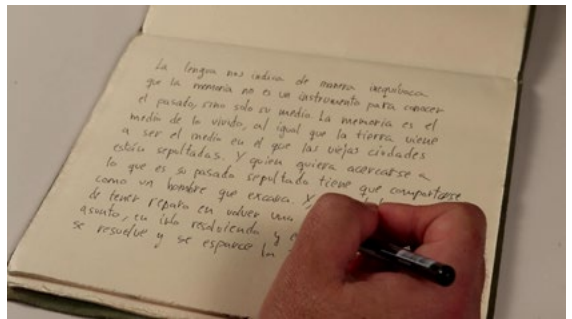 La lengua nos indica de manera inequívoca
que la memoria no es un instrumento para conocer
el pasado, sino solo su medio. La memoria es el
medio de lo vivido, al igual que la tierra viene
a ser el medio en el que las viejas ciudades
están sepultadas. Y quien quiera acercarse a
lo que es su pasado sepultado tiene que comportarse
como un hombre que excava. Y
de tener reparo en volver una
asunto, en irlo revolviendo y
se revuelve y se esparce la